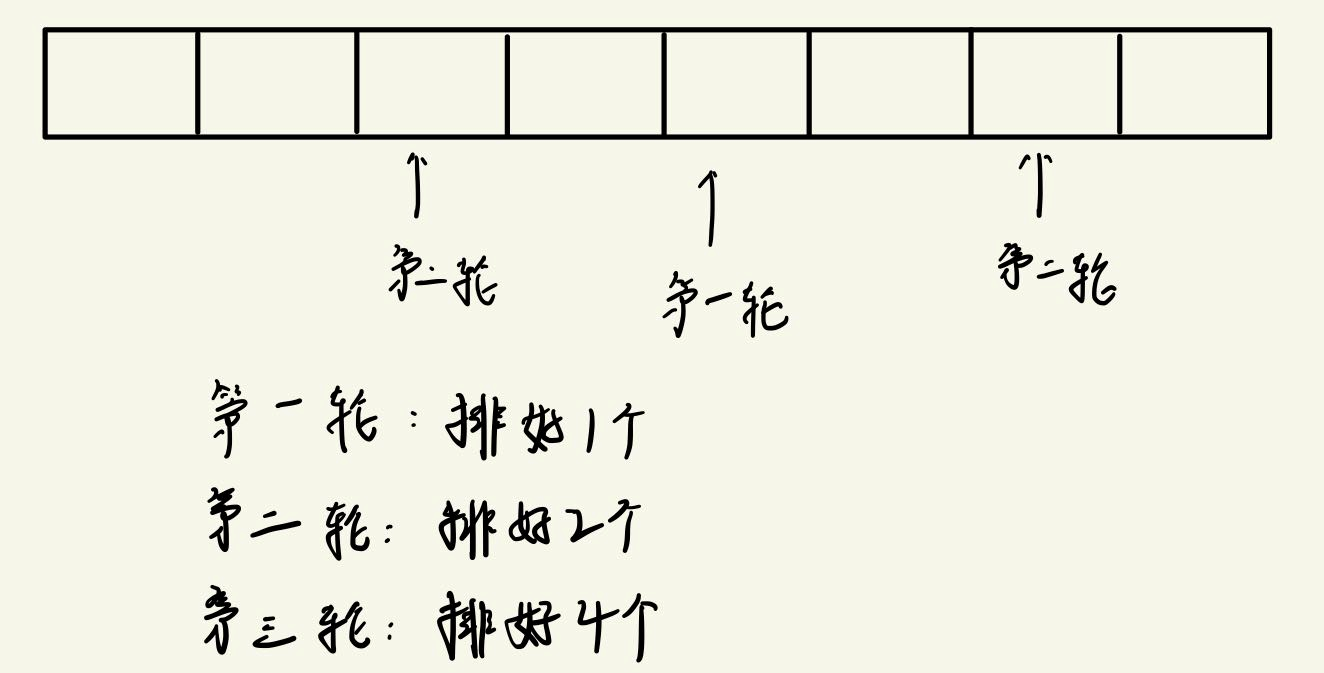 第二轮
第一轮
第二轮
第一轮：排好1个
第二轮：排好2个
第三轮：排好4个